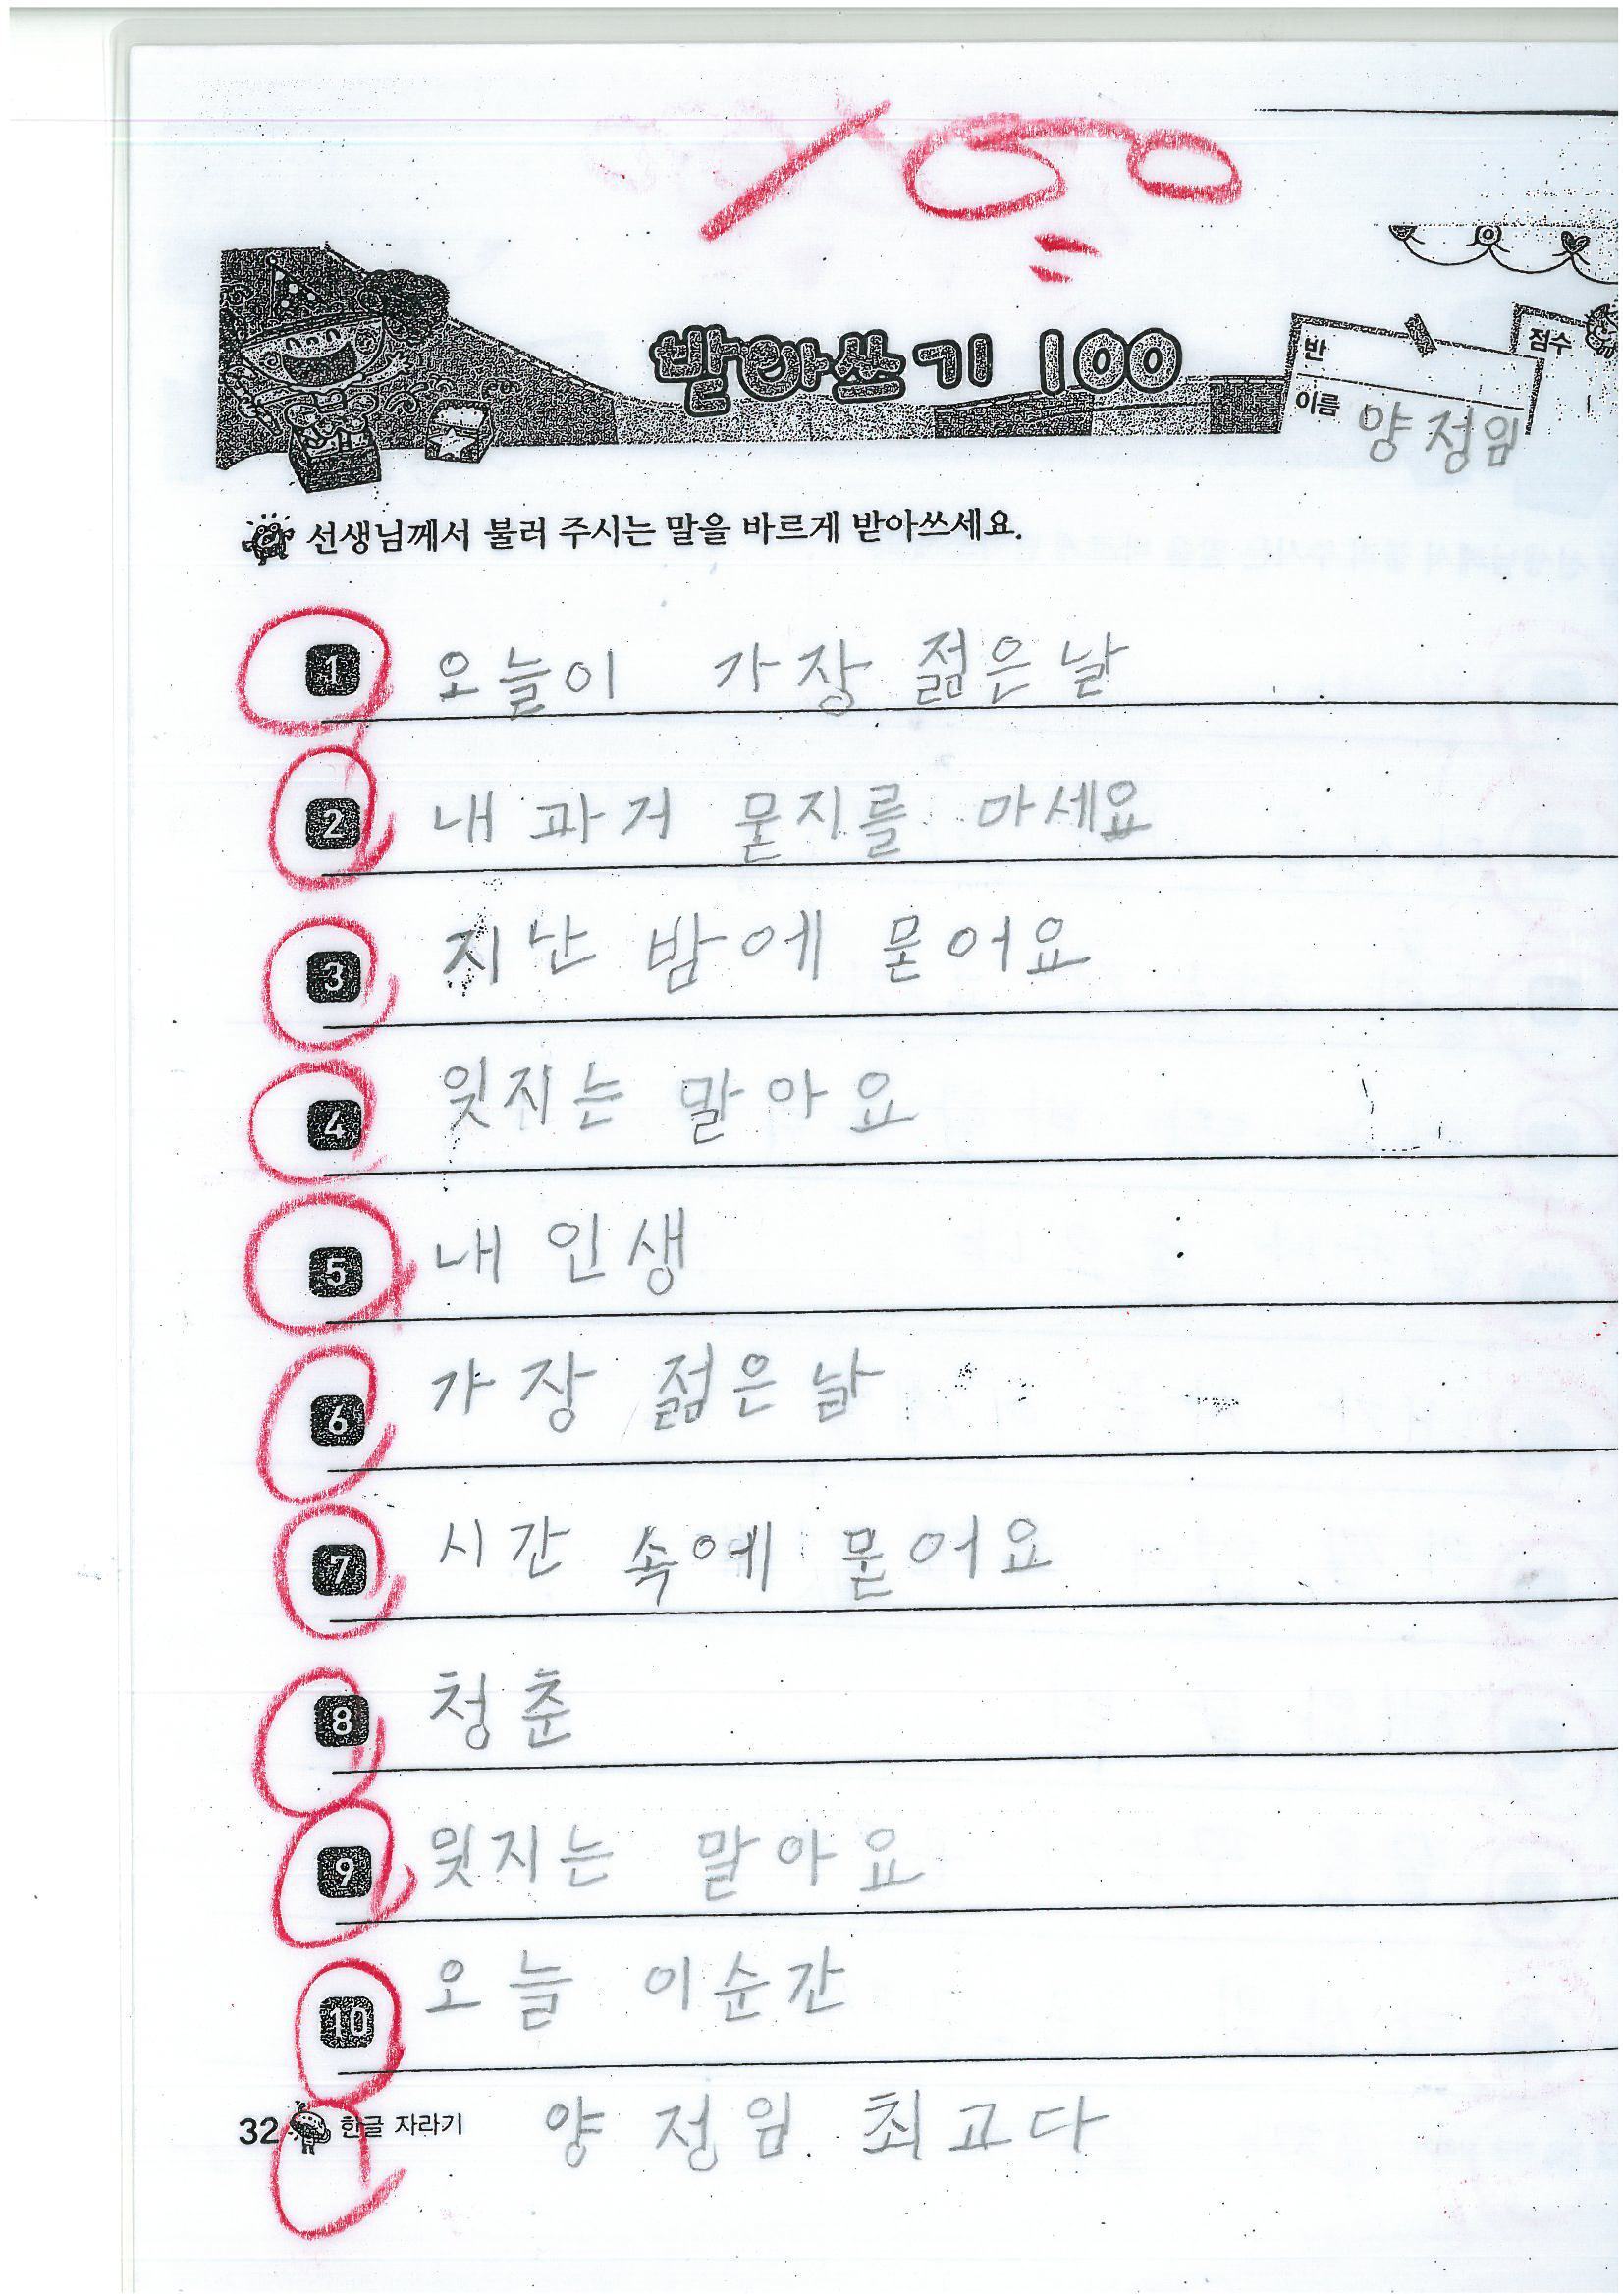 100
받아쓰기 100
반
점수
이름 양정임
선생님께서 불러 주시는 말을 바르게 받아쓰세요.
1 오늘이 가장 젊은날
2 내 과거 묻지를 마세요
3 지난 밤에 묻어요
4 잊지는 말아요
5 내 인생
6 가장 젊은날
7 시간 속에 묻어요
8 청춘
9 잊지는 말아요
10 오늘 이순간
32 한글 자라기 양정임 최고다